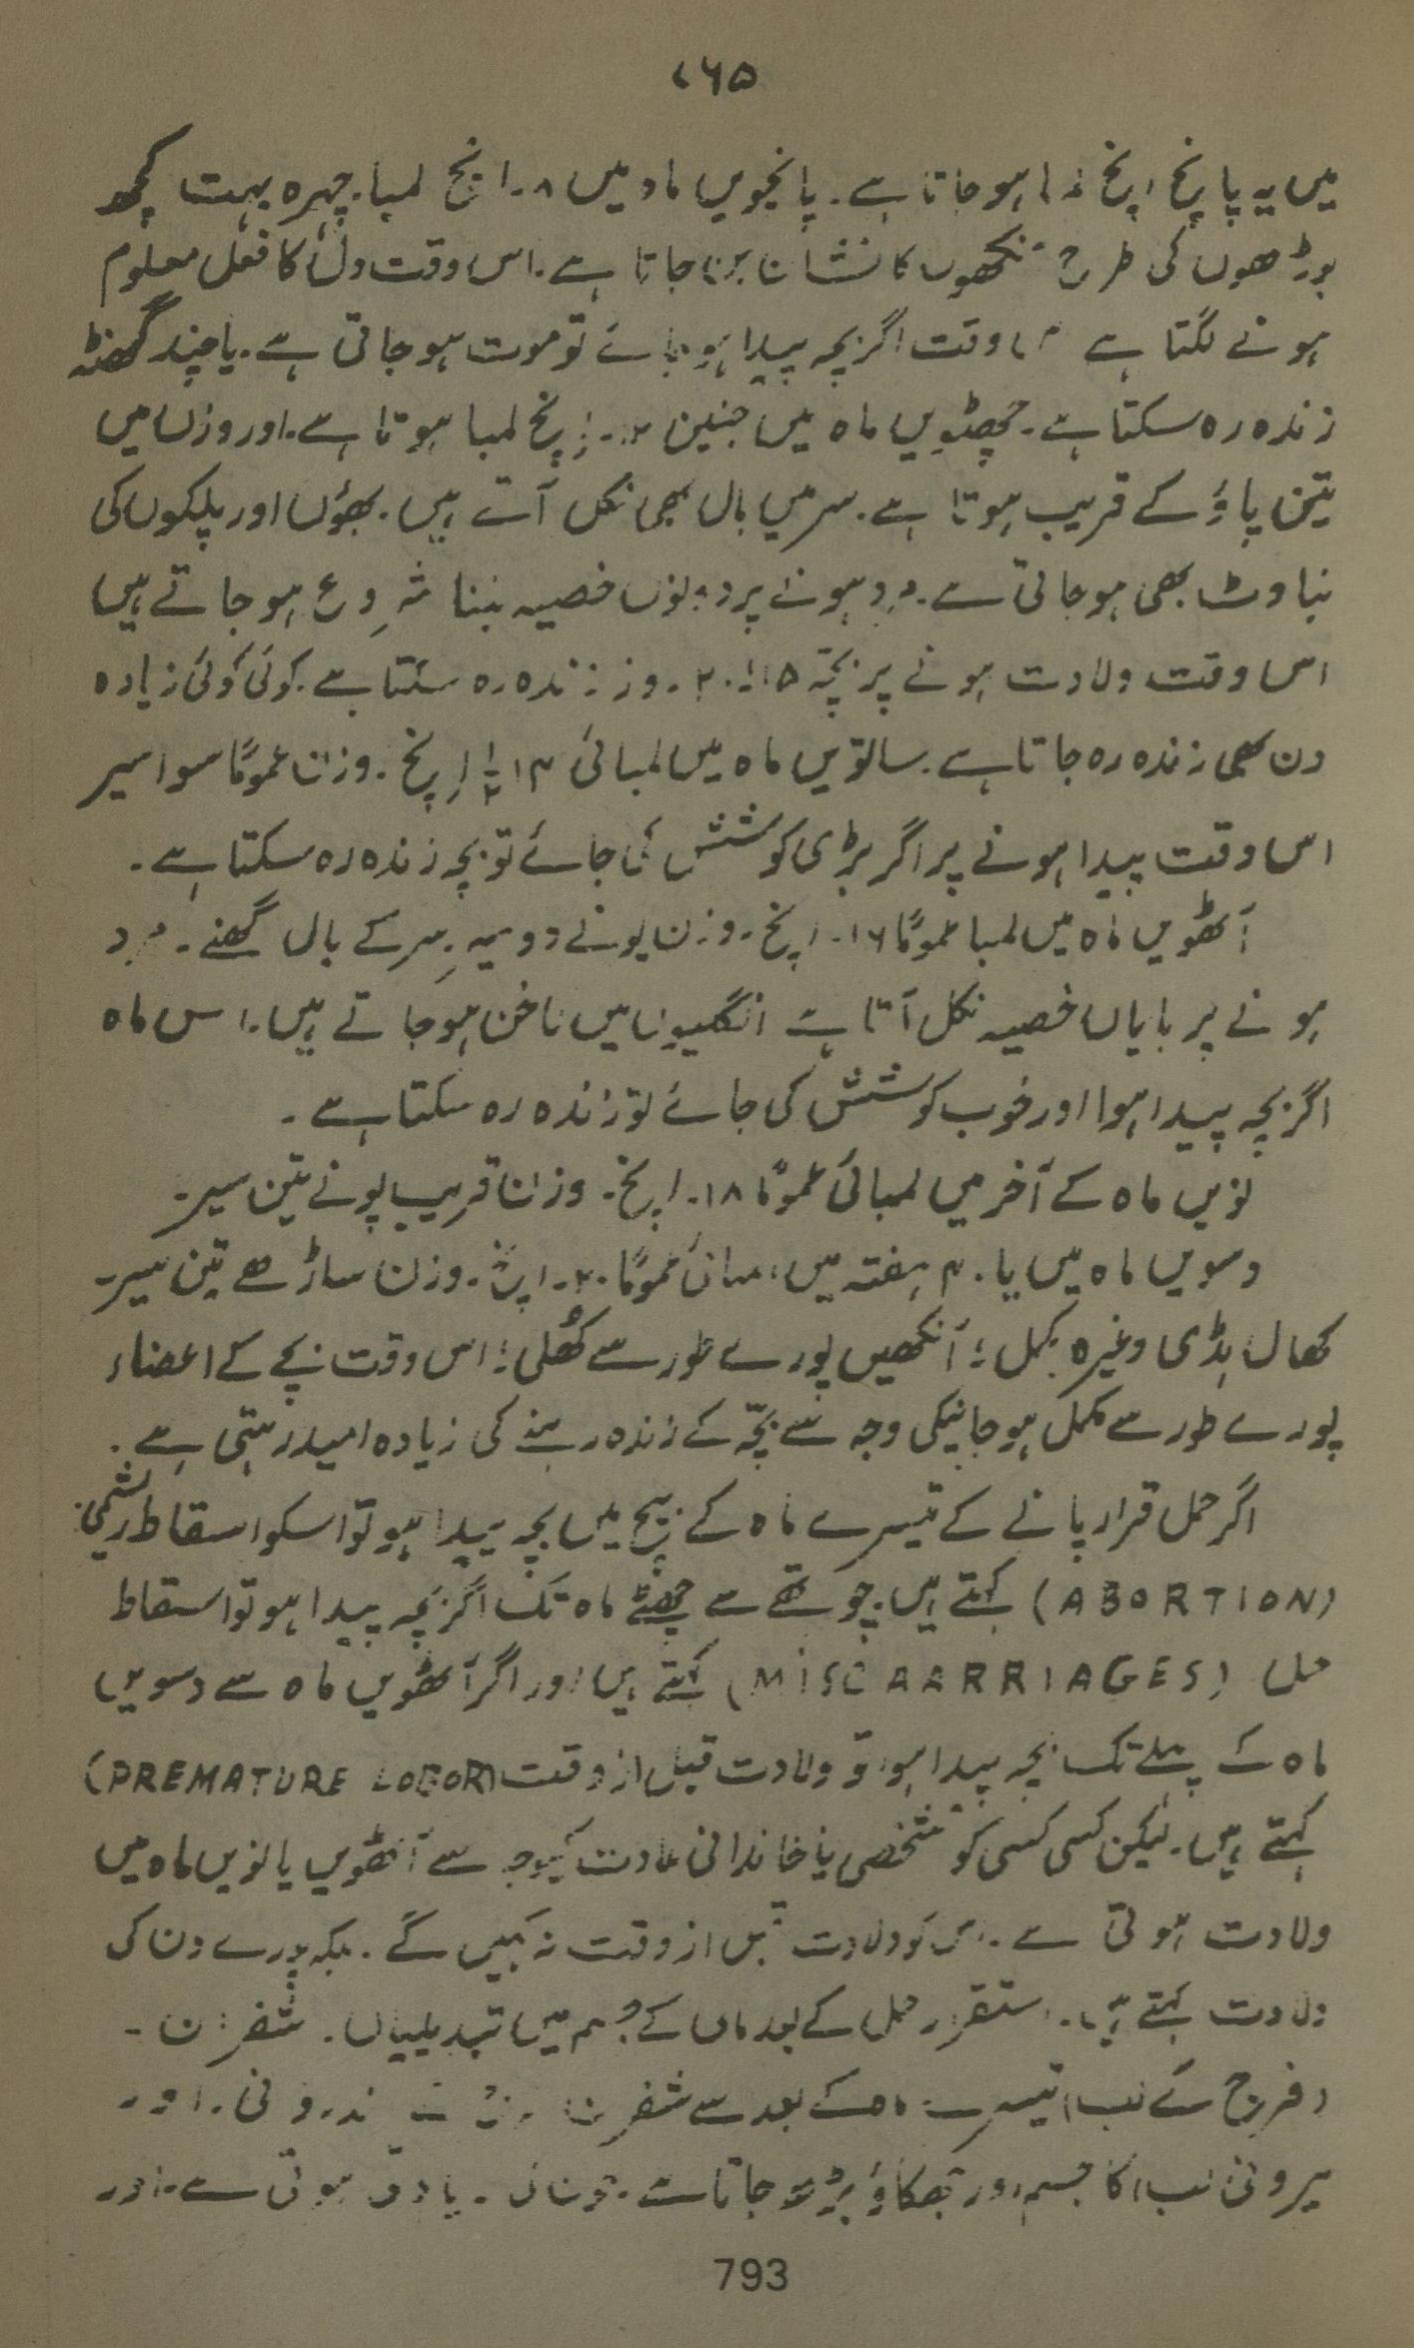 ۷۶۵
میں یہ پانچ اِنچ لمبا ہوجاتا ہے۔ پانچویں ماہ میں ۸۔ انچ لمبا۔ چہرہ بہت کچھ
بوڑھوں کی طرح آنکھوں کا نشان بن جاتا ہے۔ اس وقت دل کا فعل معلوم
ہونے لگتا ہے اس وقت اگر بچہ پیدا ہو جائے تو موت ہو جاتی ہے۔ یا چند گھنٹہ
زندہ رہ سکتا ہے۔ چھٹویں ماہ میں جنین ۱۲۔ اِنچ لمبا ہوتا ہے۔ اور وزن میں
تین پاؤ کے قریب ہوتا ہے۔ سر میں بال بھی نکل آتے ہیں۔ بھؤں اور پلکوں کی
بناوٹ بھی ہوجاتی ہے۔ مرد ہونے پر دونوں خصیہ بننا شروع ہو جاتے ہیں
اس وقت ولادت ہونے پر بچّہ ۱۵۔۲۰۔ روز زندہ رہ سکتا ہے۔ کوئی کوئی زیادہ
دن بھی زندہ رہ جاتا ہے۔ ساتویں ماہ میں لمبائی ۱۴ ۱/۲ اِنچ۔ وزن عموماً سوا سیر
اس وقت پیدا ہونے پر اگر بڑی کوشش کی جائے تو بچہ زندہ رہ سکتا ہے۔
آٹھویں ماہ میں لمبا عموماً ۱۶۔ اِنچ۔ وزن پونے دو سیر۔ سِر کے بال گھنے۔ مرد
ہونے پر بایاں خصیہ نکل آتا ہے انگلیوں میں ناخن ہو جاتے ہیں۔ اس ماہ
اگر بچہ پیدا ہوا اور خوب کوشش کی جائے تو زندہ رہ سکتا ہے۔
نویں ماہ کے آخر میں لمبائی عموماً ۱۸۔ اِنچ۔ وزن قریب پونے تین سیر۔
دسویں ماہ میں یا ۴۰ ہفتہ میں لمبائی عموماً ۲۰۔ اِنچ۔ وزن ساڑھے تین سیر۔
کھال ہڈی وغیرہ مکمل؛ آنکھیں پورے طور سے کُھلی؛ اس وقت بچے کے اعضاء
پورے طور سے مکمل ہوجانیکی وجہ سے بچّہ کے زندہ رہنے کی زیادہ امید رہتی ہے۔
اگر حمل قرار پانے کے تیسرے ماہ کے بیچ میں بچہ پیدا ہو تو اسکو اسقاط رشمی
(ABORTION) کہتے ہیں۔ چوتھے سے چھٹے ماہ تک اگر بچہ پیدا ہو تو اسقاط
حمل (MISCAARRIAGES) کہتے ہیں اور اگر آٹھویں ماہ سے دسویں
ماہ کے پہلے تک بچہ پیدا ہو تو ولادت قبل از وقت (PREMATURE LOBOR)
کہتے ہیں۔ لیکن کسی کسی کو شخصی یا خاندانی عادت کیوجہ سے آٹھویں یا نویں ماہ میں
ولادت ہوتی ہے۔ اس کو ولادت قبل از وقت نہ کہیں گے۔ بلکہ پورے دن کی
ولادت کہتے ہیں۔ استقرار حمل کے بعد ماں کے جسم میں تبدیلیاں۔ شفرن۔
(فرج کے لب) تیسرے ماہ کے بعد سے شفرن اندرونی۔ اور
بیرونی لب) کا جسم اور جھکاؤ بڑھ جاتا ہے۔ زیادتی ہوتی ہے۔ اور
793